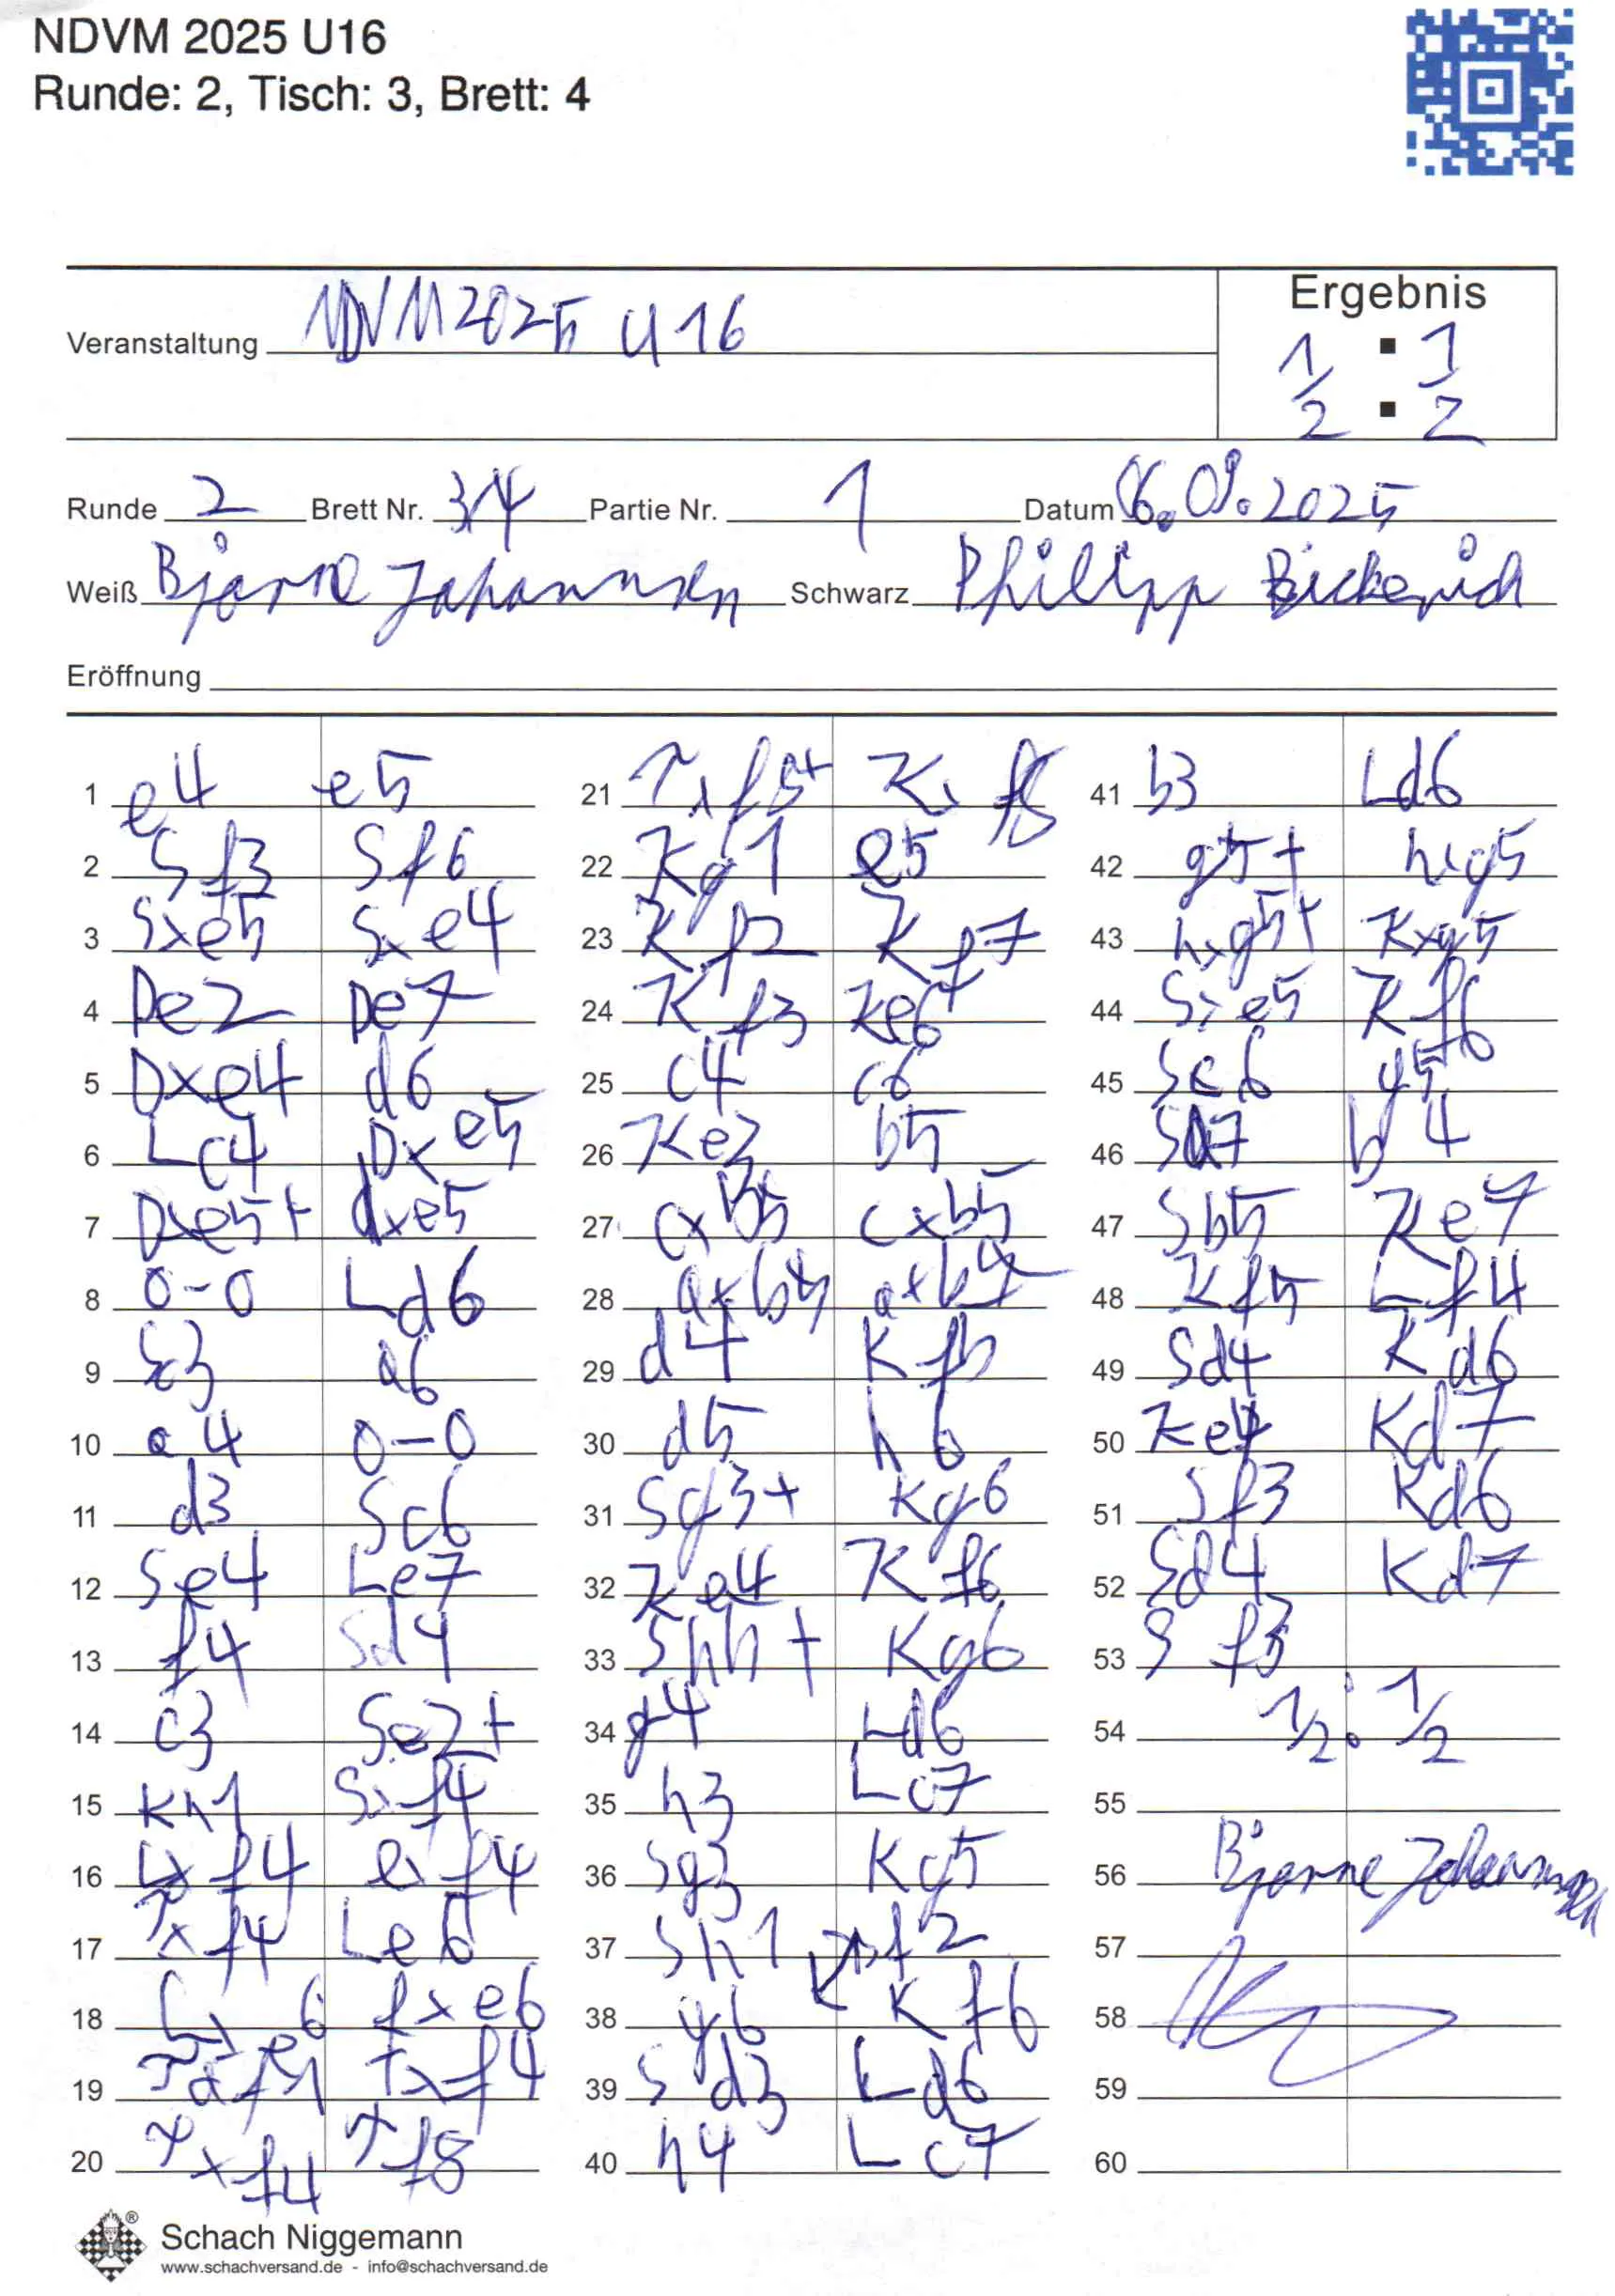 NDVM 2025 U16
Runde: 2, Tisch: 3, Brett: 4
Veranstaltung NDVM 2025 U16
Ergebnis
1/2 : 1/2
Runde 2 Brett Nr. 3/4 Partie Nr. 1 Datum 6.09.2025
Weiß Bjarne Johannsen Schwarz Philipp Bickerich
Eröffnung
1 e4 e5
2 Sf3 Sf6
3 Sxe5 Sxe4
4 De2 De7
5 Dxe4 d6
6 Lc4 Dxe5
7 Dxe5+ dxe5
8 0-0 Ld6
9 Sc3 a6
10 a4 0-0
11 d3 Sc6
12 Se4 Le7
13 f4 Sd4
14 c3 Se2+
15 Kh1 Sxf4
16 Lxf4 exf4
17 Txf4 Le6
18 Lxe6 fxe6
19 Taf1 Txf4
20 Txf4 Tf8
21 Txf8+ Kxf8
22 Kg1 e5
23 Kf2 Kf7
24 Kf3 Ke6
25 c4 c6
26 Ke3 b5
27 cxb5 cxb5
28 axb5 axb5
29 d4 Kf5
30 d5 h6
31 Sg3+ Kg6
32 Ke4 Kf6
33 Shh+ Kg6
34 g4 Ld6
35 h3 Lc7
36 Sg3 Kg5
37 Sh1
38 Kf6
39 Sd3 Ld6
40 h4 Lc7
41 b3 Ld6
42 g5+ hxg5
43 hxg5+ Kxg5
44 Sxe5 Kf6
45 Sc6 g5
46 Sd7 b4
47 Sb5 Ke7
48 Kf5 Lf4
49 Sd4 Kd6
50 Ke4 Kd7
51 Sf3 Kd6
52 Sd4 Kd7
53 Sf3
54 1/2 : 1/2
55
56 Bjarne Johannsen
57
58
59
60
® Schach Niggemann
www.schachversand.de - info@schachversand.de